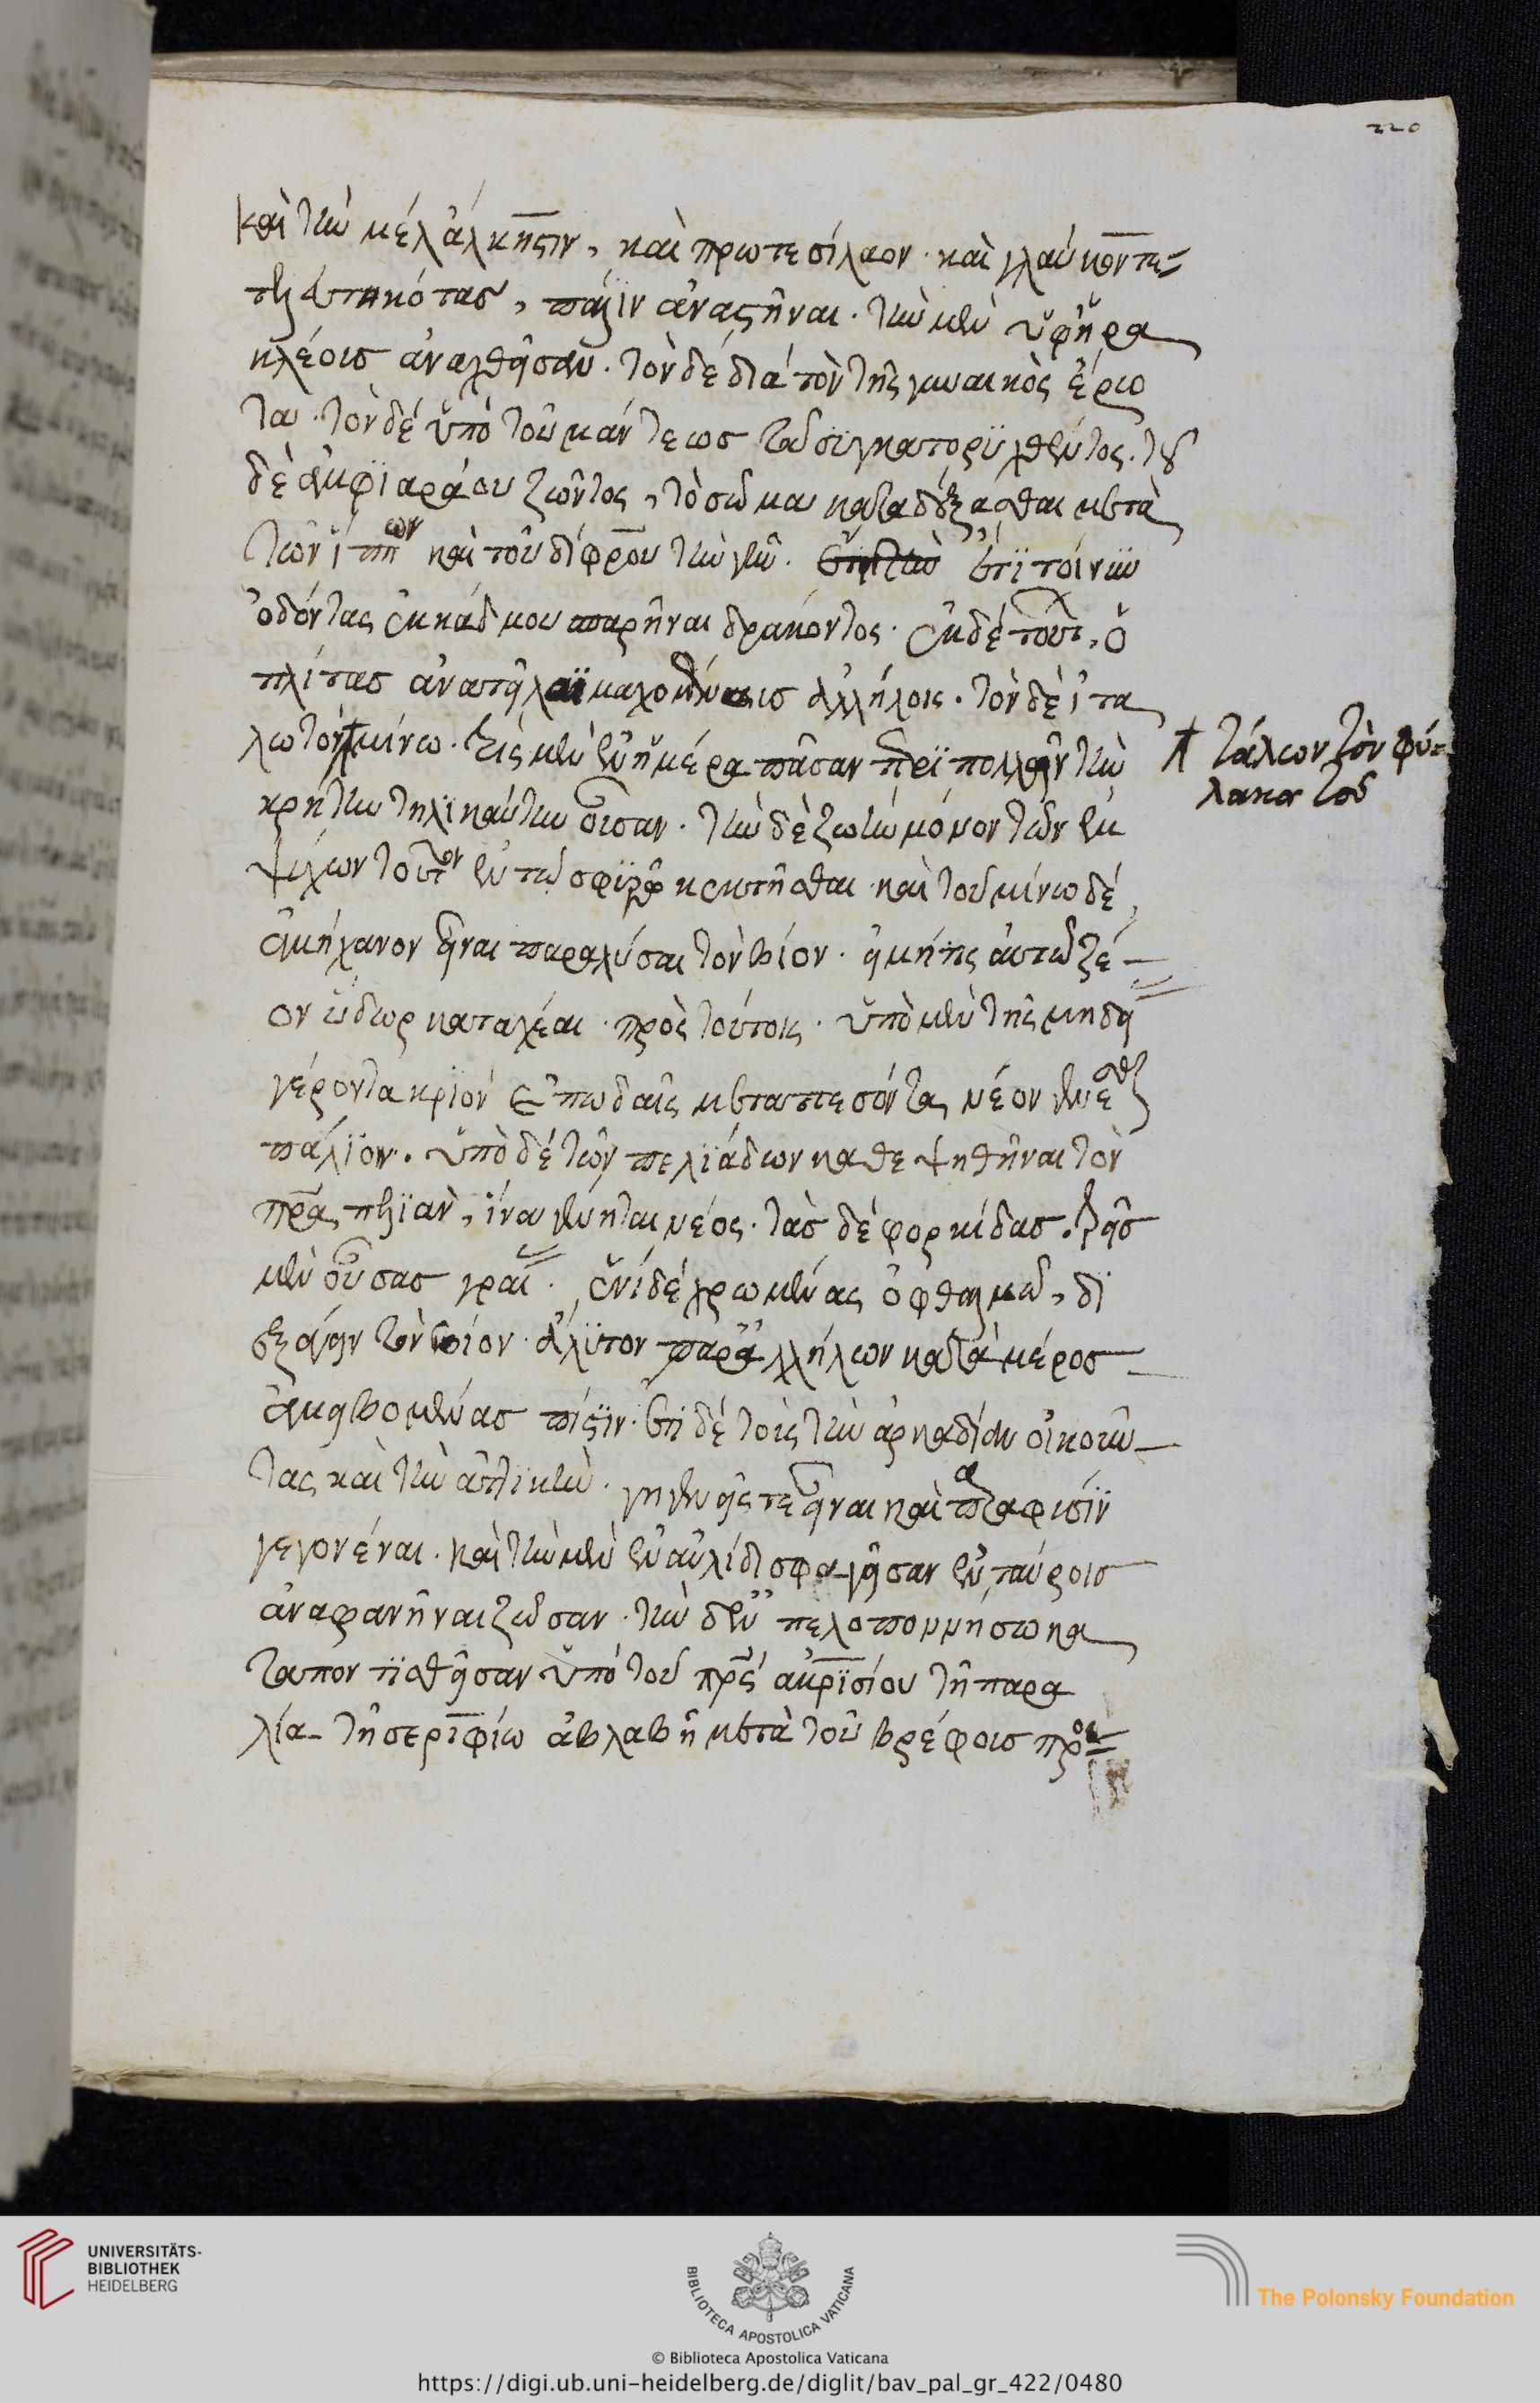 220
καὶ τὴν μὲν ἄλκηστιν, καὶ πρωτεσίλαον· καὶ γλαῦκον τε=
τελευτηκότας, πάλιν ἀναστῆναι· τὴν μὲν ὑφ' ἡρα
κλέους ἀναχθεῖσαν· τὸν δὲ διὰ τὸν τῆς γυναικὸς ἔρω
τα· τὸν δὲ ὑπὸ τοῦ μάντεως τοῦ συγκατορυχθέντος· τοῦ
δὲ ἀμφιαράου ζῶντος, τὸ σῶμα καταδέξασθαι μετὰ
τῶν ἵππων καὶ τοῦ δίφρου τὴν γῆν· ἐπὶ τοίνυν
ὀδόντας ἐκ κάδμου σπαρῆναι δράκοντος· ἐκ δὲ τούτων, ὁ
πλίτας ἀνατεῖλαι μαχομένους ἀλλήλοις· τὸν δὲ ἱτα
λωτὸν μίνω· εἰς μὲν ἐν ἡμέρα πᾶσαν περιπολεῖν τὴν
κρήτην τηλικαύτην οὖσαν· τὴν δὲ ζωὴν μόνον τῶν ἐμ
ψύχων τοῦτον ἐν τῷ σφυρῷ κεκτῆσθαι· καὶ τοῦ μίνω δὲ
ἀμήχανον εἶναι παραλῦσαι τὸν βίον· εἰ μή τις αὐτῷ ζέ-
ον ὕδωρ καταχέαι· πρὸς τούτοις· ὑπὸ μὲν τῆς μηδεί
γέροντα κριὸν ἐπῳδαῖς μεταπεσόντα, νέον γενέσθαι
πάλιν· ὑπὸ δὲ τῶν πελιάδων καθεψηθῆναι τὸν
πρα, πελίαν, ἵνα γένηται νέος· τὰς δὲ φορκίδας· τρεῖς
μὲν οὔσας γραί· ἑνὶ δὲ χρωμένας ὀφθαλμῷ, δι
εξάγειν τὸν βίον· ἄλυτον παρ' ἀλλήλων κατὰ μέρος
ἀμειβομένας πίστιν· ἔτι δὲ τοὺς τὴν ἀρκαδίαν οἰκοῦν-
τας καὶ τὴν ἀττικὴν· γηγενεῖς τε εἶναι καὶ
γεγονέναι· καὶ τὴν μὲν ἐν αὐλίδι σφαγεῖσαν ἐν ταύροις
ἀναφανῆναι ζῶσαν· τὴν δ' ἐν πελοποννήσω κα
ταποντισθεῖσαν ὑπὸ τοῦ πρς ἀκρισίου τῇ παρα
λία τῇ σεριφίω ἀβλαβῆ μετὰ τοῦ βρέφους προσ=
τάλων τὸν φύ=
λακα τοῦ
UNIVERSITÄTS-
BIBLIOTHEK
HEIDELBERG
BIBLIOTECA APOSTOLICA VATICANA
The Polonsky Foundation
© Biblioteca Apostolica Vaticana
https://digi.ub.uni-heidelberg.de/diglit/bav_pal_gr_422/0480